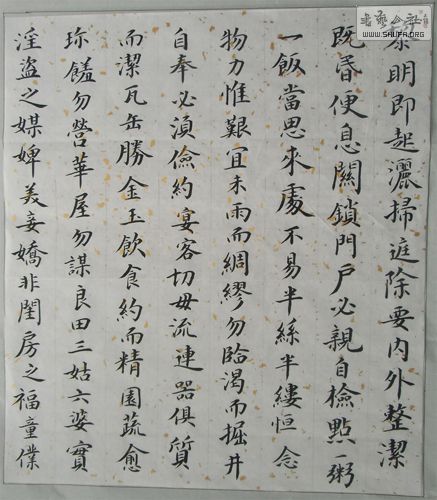 黎明即起灑掃庭除要内外整潔
既昏便息關鎖門戶必親自檢點一粥
一飯當思來處不易半絲半縷恒念
物力惟艱宜未雨而綢繆勿臨渴而掘井
自奉必須儉約宴客切毋流連器俱質
而潔瓦缶勝金玉飲食約而精園蔬愈
珍饈勿營華屋勿謀良田三姑六婆實
淫盜之媒婢美妾嬌非閨房之福童僕
書藝公社
WWW.SHUFA.ORG